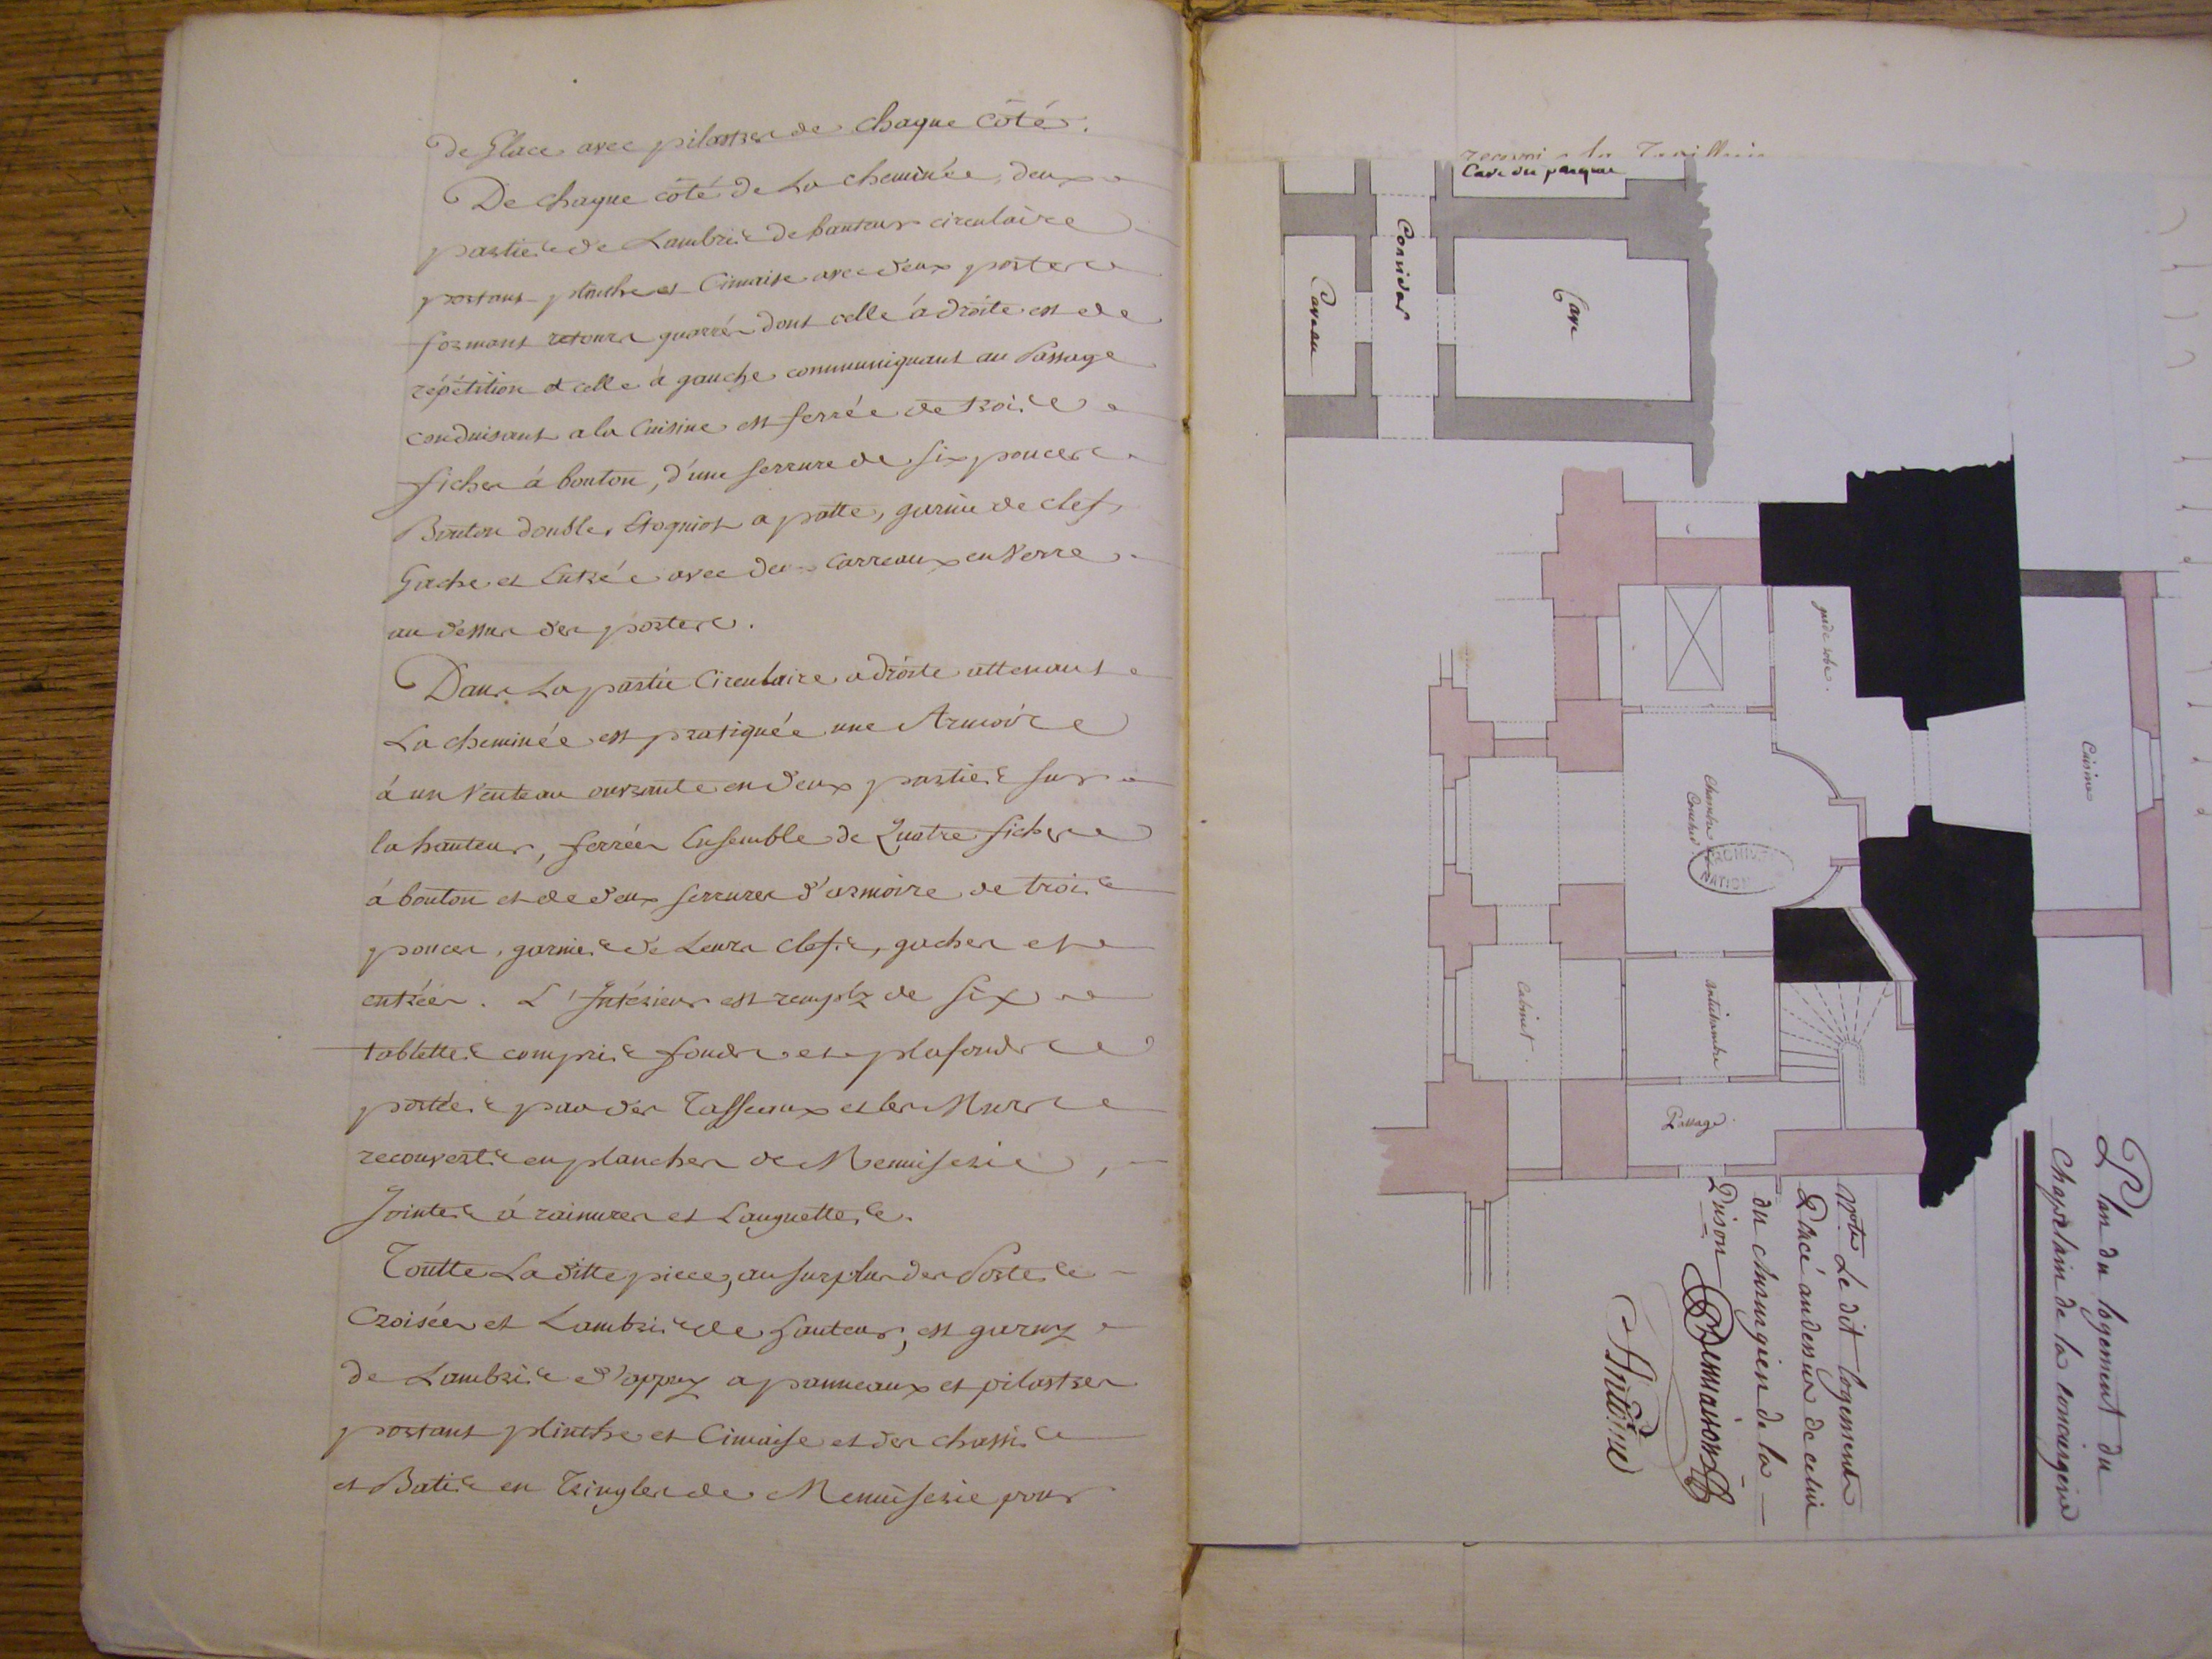 De Glace avec pilastres de chaque côtés.
De chaque côté de La cheminée, deux
parties de Lambris de hauteur circulaire
portant plinthes et Cimaise avec deux portes
formant retours quarrés dont celle à droite est de
répétition et celle à gauche communiquant au Passage
conduisant a la Cuisine est ferrée de trois
fiches à bouton, d'une serrure de six pouces
Bouton double, a patte, garnie de clef,
Gache et Entrée avec des carreaux en Verre
au dessus des portes.
Dans La partie Circulaire a droite attenant
La cheminée est pratiquée une Armoire
à un Venteau ouvrante en deux parties sur
la hauteur, ferrées Ensemble de Quatre fiches
à bouton et de deux serrures d'armoire de trois
pouces, garnies de Leurs Clefs, gaches et
entrées. L'Intérieur est remply de six
tablettes compris fonds et plafonds
portées par des Tasseaux et les Murs
recouverts en planches de Menuiserie,
Jointes à rainures et Languettes.
Toutte La ditte piece, au surplus des Portes
Croisées et Lambris de hauteur, est garny
de Lambris d'appuy a panneaux et pilastres
portant plinthe et Cimaise et des chassis
et Batis en Tringles de Menuiserie pour
Cave du
Corridor
Cave
Caveau
garde robe.
Cuisine
Chambre a
Coucher
ARCHIVES
NATION
Cabinet.
antichambre
Passage.
Plan du logement du
Chapelain de la conciergerie
Nota Le dit logement
Placé audessus de celui
du chirurgien de la
Prison
Demaisons
Antoine